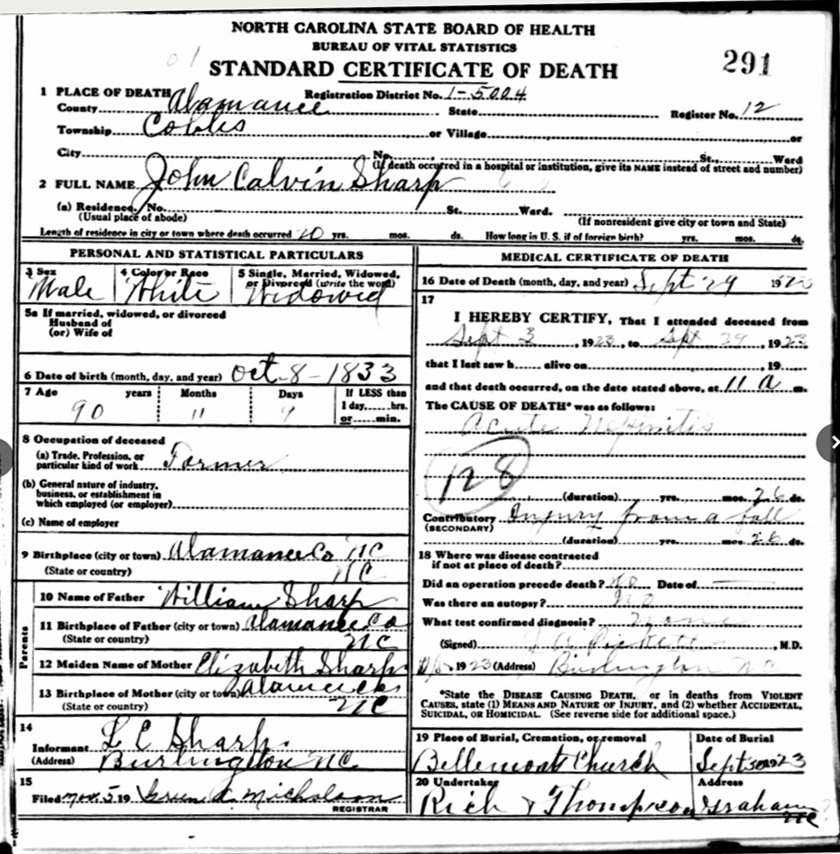 NORTH CAROLINA STATE BOARD OF HEALTH
BUREAU OF VITAL STATISTICS
STANDARD CERTIFICATE OF DEATH
291
1 PLACE OF DEATH Registration District No. 1-5004
County Alamance State Register No. 12
Township Cobles or Village or
City No. St., Ward
(If death occurred in a hospital or institution, give its NAME instead of street and number)
2 FULL NAME John Calvin Sharp
(a) Residence. No. St. Ward.
(Usual place of abode) (If nonresident give city or town and State)
Length of residence in city or town where death occurred yrs. mos. ds. How long in U. S. if of foreign birth? yrs. mos. ds.
PERSONAL AND STATISTICAL PARTICULARS
3 Sex 4 Color or Race 5 Single, Married, Widowed, or Divorced (write the word)
Male White Widowed
5a If married, widowed, or divorced
Husband of
(or) Wife of
6 Date of birth (month, day, and year) Oct-8-1833
7 Age years Months Days If LESS than
1 day, hrs.
or min.
90 11
8 Occupation of deceased
(a) Trade, Profession, or
particular kind of work Farmer
(b) General nature of industry,
business, or establishment in
which employed (or employer)
(c) Name of employer
9 Birthplace (city or town) Alamance Co NC
(State or country) NC
Parents
10 Name of Father William Sharp
11 Birthplace of Father (city or town) Alamance Co
(State or country) NC
12 Maiden Name of Mother Elizabeth Sharp
13 Birthplace of Mother (city or town)
(State or country) NC
14
Informant L C Sharp
(Address) Burlington NC
15
Filed Nov. 5 19 Nicholson
REGISTRAR
MEDICAL CERTIFICATE OF DEATH
16 Date of Death (month, day, and year) Sept 29 19
17
I HEREBY CERTIFY, That I attended deceased from
Sept 3, 1923, to Sept 29, 1923
that I last saw h alive on , 19
and that death occurred, on the date stated above, at 11 a m.
The CAUSE OF DEATH* was as follows:
Acute Nephritis
128
(duration) yrs. mos. 26 ds.
Contributory Injury from a fall
(SECONDARY)
(duration) yrs. mos. 26 ds.
18 Where was disease contracted
if not at place of death?
Did an operation precede death? No Date of
Was there an autopsy? No
What test confirmed diagnosis?
(Signed) Pickett, M.D.
1923 (Address) Burlington NC
*State the DISEASE CAUSING DEATH, or in deaths from VIOLENT
CAUSES, state (1) MEANS AND NATURE OF INJURY, and (2) whether ACCIDENTAL,
SUICIDAL, or HOMICIDAL. (See reverse side for additional space.)
19 Place of Burial, Cremation, or removal Date of Burial
Bellemont Church Sept 30 1923
20 Undertaker Address
Rich & Thompson Graham
NC